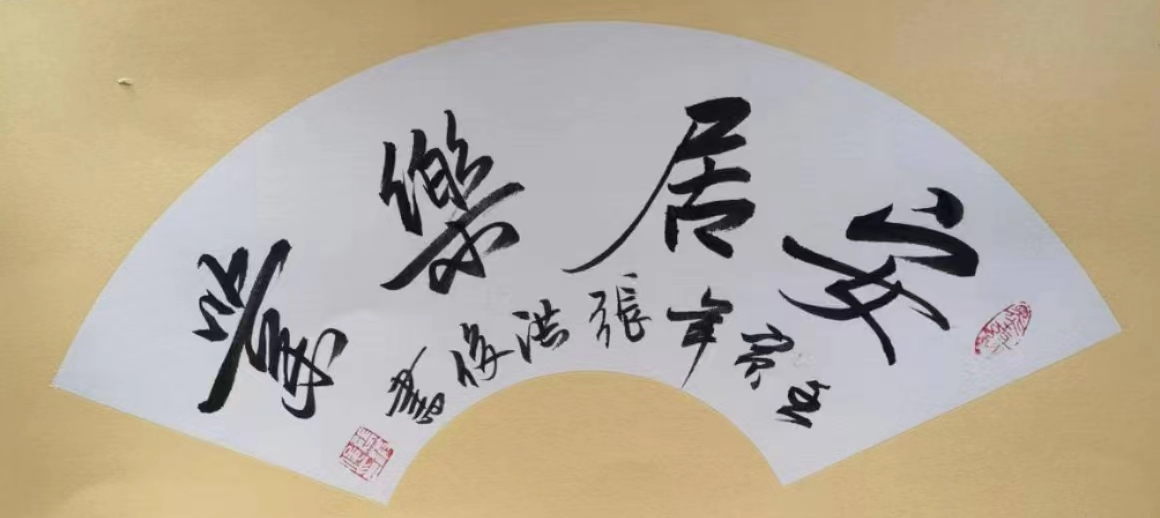 安居樂業
壬寅年張洪俊書